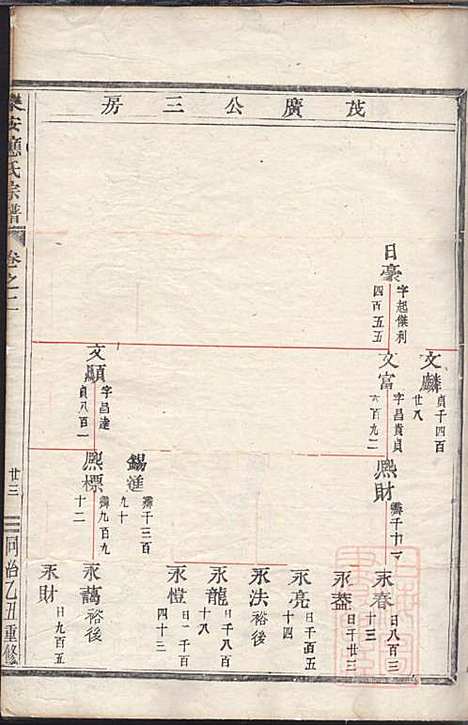 茂廣公三房
日豪
字起傑利
四百五五
文麟
貞千四百
廿八
文富
字昌貴貞
六百九二
文顯
字昌達
貞八百一
熙財
錫進
壽千三百
九十
熙標
壽九百九
十二
永春
日八百三
十三
永益
日千廿三
永亮
日千百五
十四
永法
裕後
永龍
日千八百
十八
永愷
日一千百
四十三
永藹
裕後
永財
日九百五
樂安應氏宗譜
卷之二
廿三
同治乙丑重修